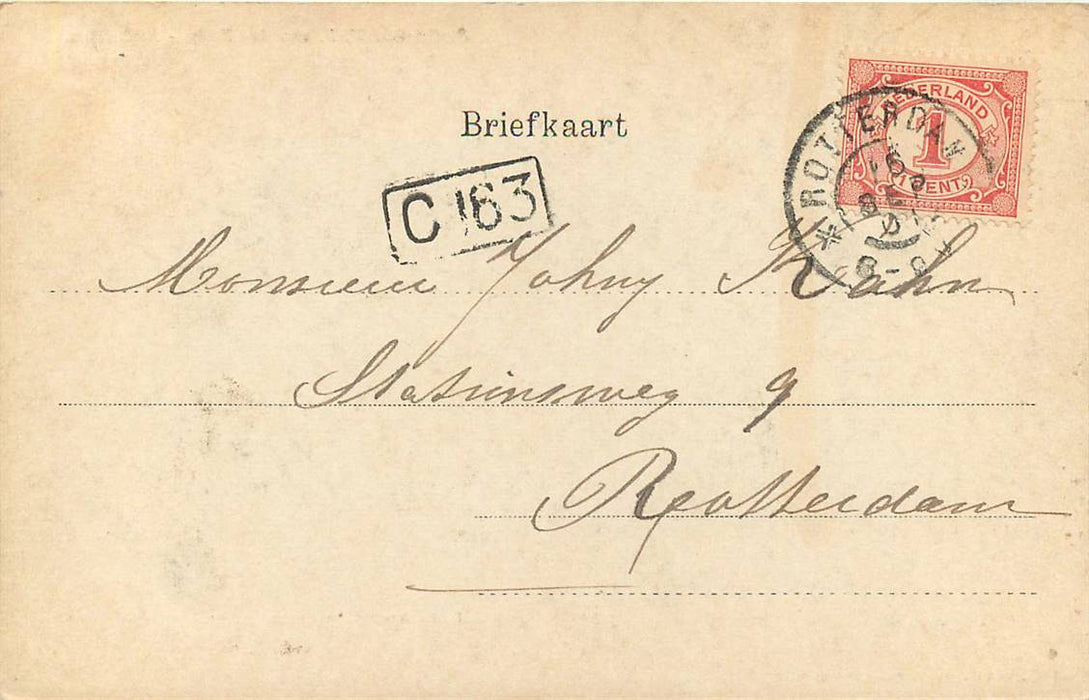 Briefkaart
NEDERLAND
1
1 CENT
ROTTERDAM
8-9
C 163
Monsieur Johny Kahn
Stationsweg 9
Rotterdam